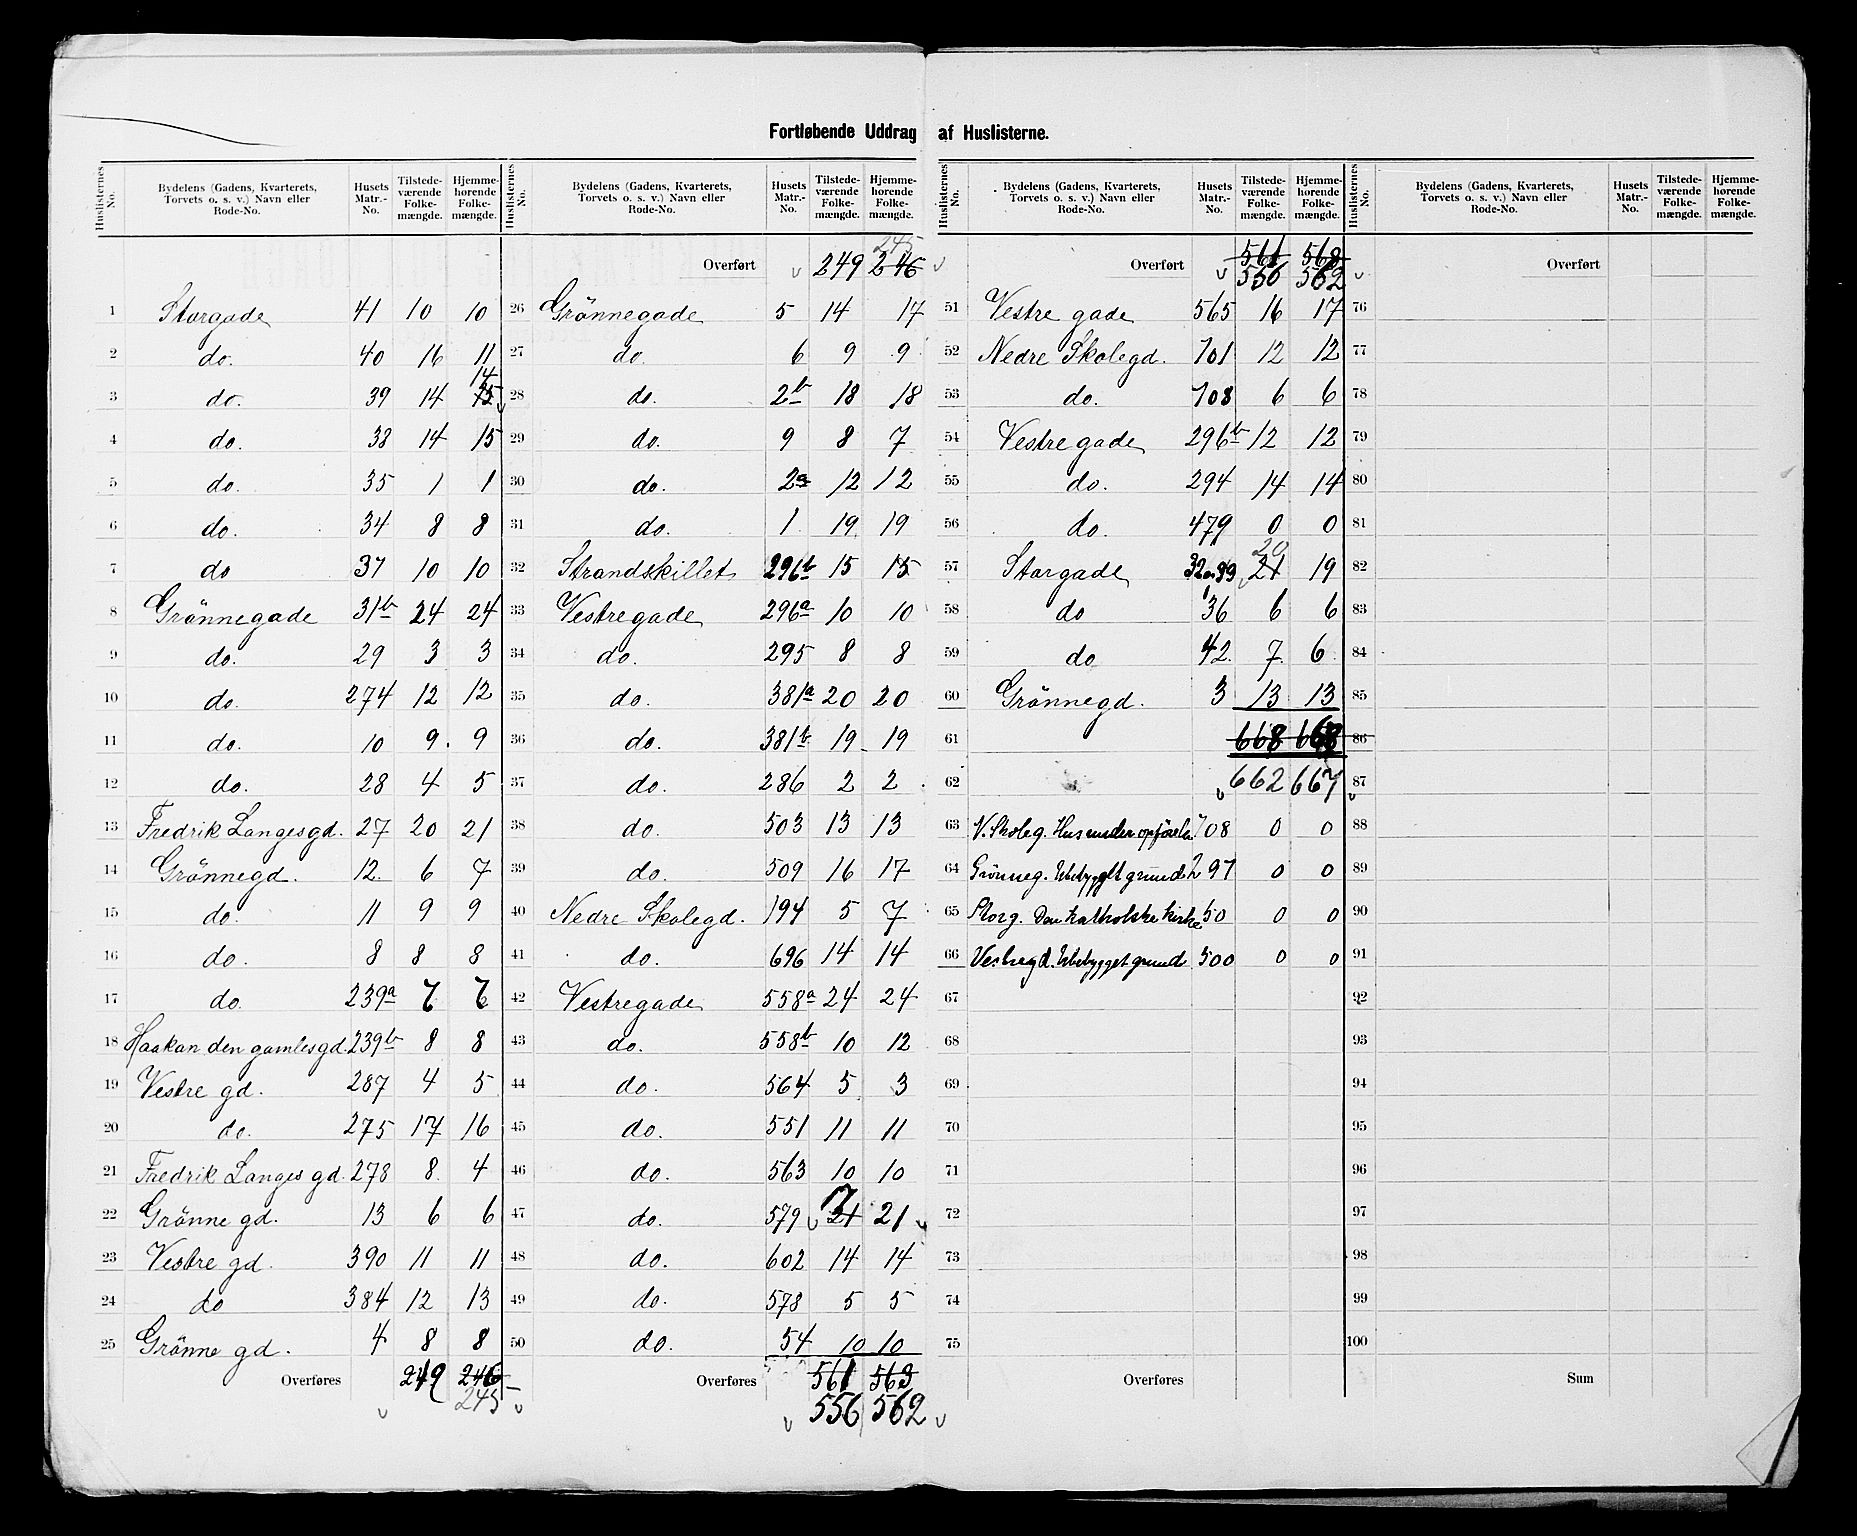 Fortløbende Uddrag af Huslisterne.
Huslisternes No. | Bydelens (Gadens, Kvarterets, Torvets o. s. v.) Navn eller Rode-No. | Husets Matr.-No. | Tilstedeværende Folkemængde. | Hjemmehørende Folkemængde.
1 Storgade 41 10 10
2 do. 40 16 11
3 do. 39 14 15 14
4 do. 38 14 15
5 do. 35 1 1
6 do. 34 8 8
7 do 37 10 10
8 Grönnegade 31b 24 24
9 do. 29 3 3
10 do. 274 12 12
11 do. 10 9 9
12 do. 28 4 5
13 Fredrik Langesgd. 27 20 21
14 Grönnegd. 12. 6 7
15 do. 11 9 9
16 do. 8 8 8
17 do. 239a
18 Haakan den gamlesgd. 239b 8 8
19 Vestre gd. 287 4 5
20 do. 275 17 16
21 Fredrik Langes gd. 278 8 4
22 Grönne gd. 13 6 6
23 Vestre gd. 390 11 11
24 do 384 12 13
25 Grönne gd. 4 8 8
Overføres 249 246
245
Huslisternes No. | Bydelens (Gadens, Kvarterets, Torvets o. s. v.) Navn eller Rode-No. | Husets Matr.-No. | Tilstedeværende Folkemængde. | Hjemmehørende Folkemængde.
245
Overført 249 246
26 Grönnegade 5 14 17
27 do. 6 9 9
28 do. 2b 18 18
29 do. 9 8 7
30 do. 2a 12 12
31 do. 1 19 19
32 Strandskillet 296b 15 15
33 Vestregade 296a 10 10
34 do. 295 8 8
35 do. 381a 20 20
36 do. 381b 19 19
37 do. 286 2 2
38 do. 503 13 13
39 do. 509 16 17
40 Nedre Skolegd. 194 5 7
41 do. 696 14 14
42 Vestregade 558a 24 24
43 do. 558b 10 12
44 do. 564 5 3
45 do. 551 11 11
46 do. 563 10 10
47 do. 579 21 17 21
48 do. 602 14 14
49 do. 578 5 5
50 do. 54 10 10
Overføres 561 563
556 562
Huslisternes No. | Bydelens (Gadens, Kvarterets, Torvets o. s. v.) Navn eller Rode-No. | Husets Matr.-No. | Tilstedeværende Folkemængde. | Hjemmehørende Folkemængde.
561 568
Overført 556 562
51 Vestre gade 565 16 17
52 Nedre Skolegd. 701 12 12
53 do. 708 6 6
54 Vestregade 296b 12 12
55 do. 294 14 14
56 do. 479 0 0
57 Storgade 21 20 19
58 do 36 6 6
59 do 42. 7. 6.
60 Grönnegd. 3 13 13
61 668 668
62 662 667
63 N. Skoleg. Hus under opförelse 708 0 0
64 Grönneg. Ubebygget grund 297 0 0
65 Storg. Den katholske kirke 50 0 0
66 Vestregd. Ubebygget grund 500 0 0
67
68
69
70
71
72
73
74
75
Overføres
Huslisternes No. | Bydelens (Gadens, Kvarterets, Torvets o. s. v.) Navn eller Rode-No. | Husets Matr.-No. | Tilstedeværende Folkemængde. | Hjemmehørende Folkemængde.
Overført
76
77
78
79
80
81
82
83
84
85
86
87
88
89
90
91
92
93
94
95
96
97
98
99
100
Sum